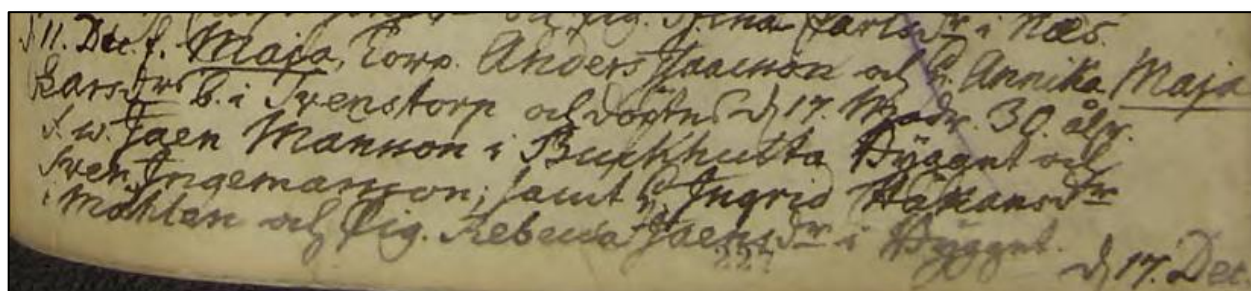 och Pig. Stina Carlsdr i Næs.
d 11. Dec. f. Maja, Torp. Anders Isacsson och h. Annika Maja
Larsdrs b. i Svenstorp och döptes d 17. Modr. 30. åhr.
S. w. Jaen Månsson i Buskhulta Bygget och
Sven Ingemarsson; samt h. Ingrid Håkansdr
i Möhlan och Pig. Rebecca Jaensdr i Bygget.
227
d 17. Dec.